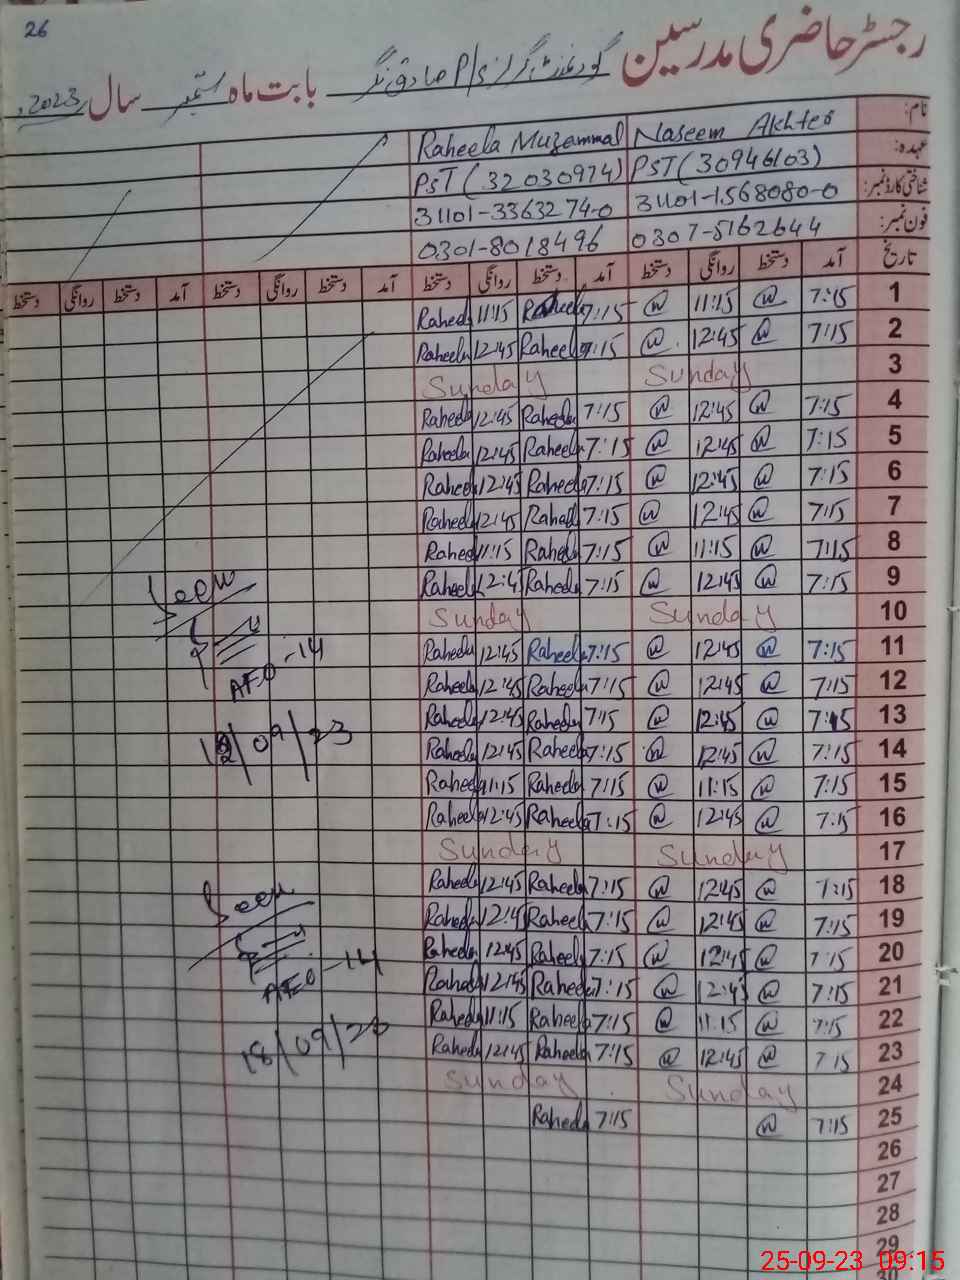 26
رجسٹر حاضری مدرسین گورنمنٹ گرلز P/S صادق نگر بابت ماہ ستمبر سال 2023ء
نام: Naseem Akhter Raheela Muzammal
عہدہ: PST (30946103) PST (32030974)
شناختی کارڈ نمبر: 31101-1568080-0 31101-3363274-0
فون نمبر: 0307-5162644 0301-8018496
تاریخ آمد دستخط روانگی دستخط آمد دستخط روانگی دستخط آمد دستخط روانگی دستخط آمد دستخط روانگی دستخط
Raheela 11:15 Raheela 7:15 @ 11:15 @ 7:15 1
Raheela 12:45 Raheela 7:15 @ 12:45 @ 7:15 2
Sunday Sunday 3
Raheela 12:45 Raheela 7:15 @ 12:45 @ 7:15 4
Raheela 12:45 Raheela 7:15 @ 12:45 @ 7:15 5
Raheela 12:45 Raheela 7:15 @ 12:45 @ 7:15 6
Raheela 12:45 Raheela 7:15 @ 12:45 @ 7:15 7
Raheela 11:15 Raheela 7:15 @ 11:15 @ 7:15 8
Raheela 12:45 Raheela 7:15 @ 12:45 @ 7:15 9
Sunday Sunday 10
Raheela 12:45 Raheela 7:15 @ 12:45 @ 7:15 11
Raheela 12:45 Raheela 7:15 @ 12:45 @ 7:15 12
Raheela 12:45 Raheela 7:15 @ 12:45 @ 7:15 13
Raheela 12:45 Raheela 7:15 @ 12:45 @ 7:15 14
Raheela 11:15 Raheela 7:15 @ 11:15 @ 7:15 15
Raheela 12:45 Raheela 7:15 @ 12:45 @ 7:15 16
Sunday Sunday 17
Raheela 12:45 Raheela 7:15 @ 12:45 @ 7:15 18
Raheela 12:45 Raheela 7:15 @ 12:45 @ 7:15 19
Raheela 12:45 Raheela 7:15 @ 12:45 @ 7:15 20
Raheela 12:45 Raheela 7:15 @ 12:45 @ 7:15 21
Raheela 11:15 Raheela 7:15 @ 11:15 @ 7:15 22
Raheela 12:45 Raheela 7:15 @ 12:45 @ 7:15 23
Sunday Sunday 24
Raheela 7:15 @ 7:15 25
26
27
28
29
30
Seen
AEO-14
12/09/23
Seen
AEO-14
18/09/23
25-09-23 09:15